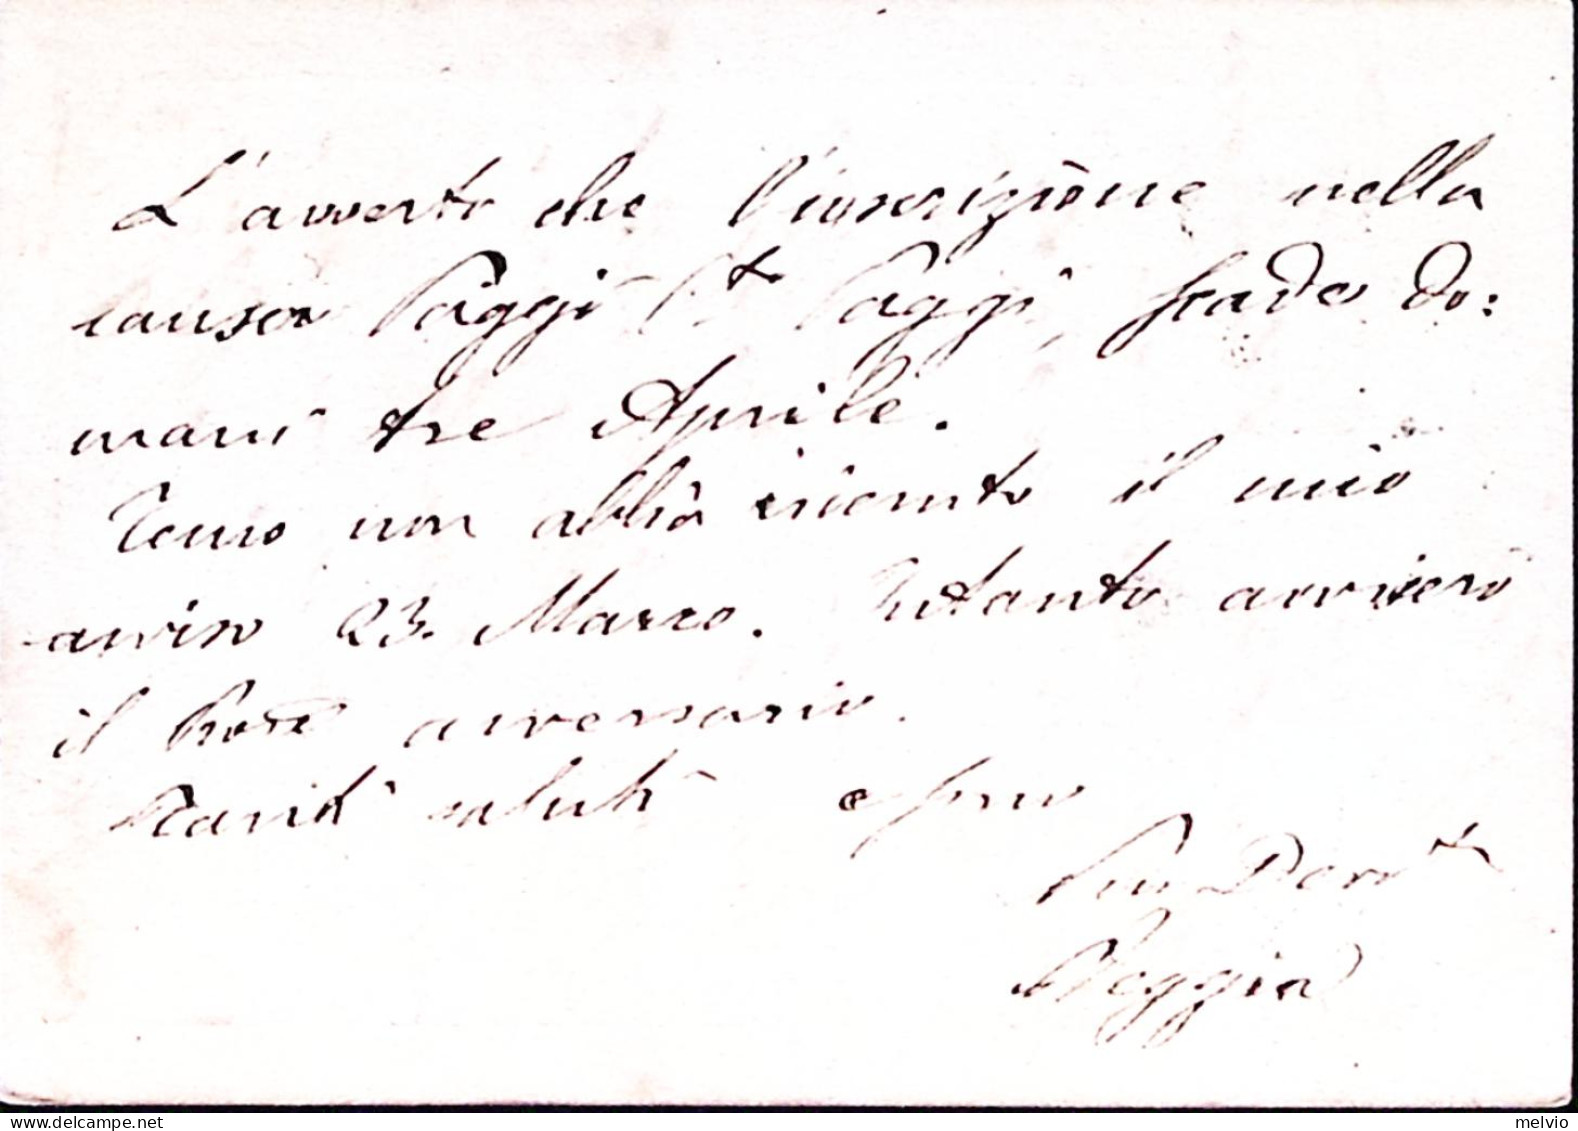 L'avverto che l'inscrizione nella
causa Paggi C.to Paggi, scade do:
mani tre Aprile.
Temo non abbia ricevuto il mio
avviso 23. Marzo. Intanto avviserò
il Proc.e avversario.
Tanti saluti e sono
Suo Dev.to
Reggia
www.delcampe.net
melvio